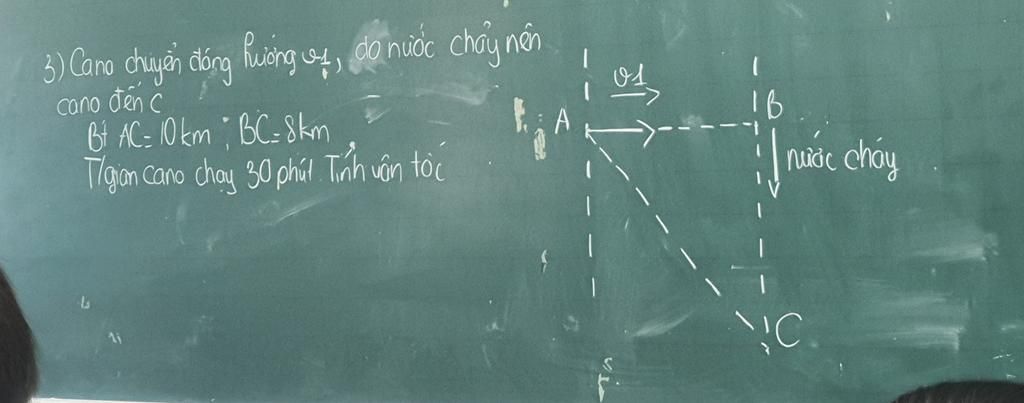 3) Cano chuyển động hướng v1, do nước chảy nên
cano đến C
Bt AC = 10km ; BC = 8km
T/gian cano chạy 30 phút. Tính vận tốc
v1
A
B
nước chảy
C